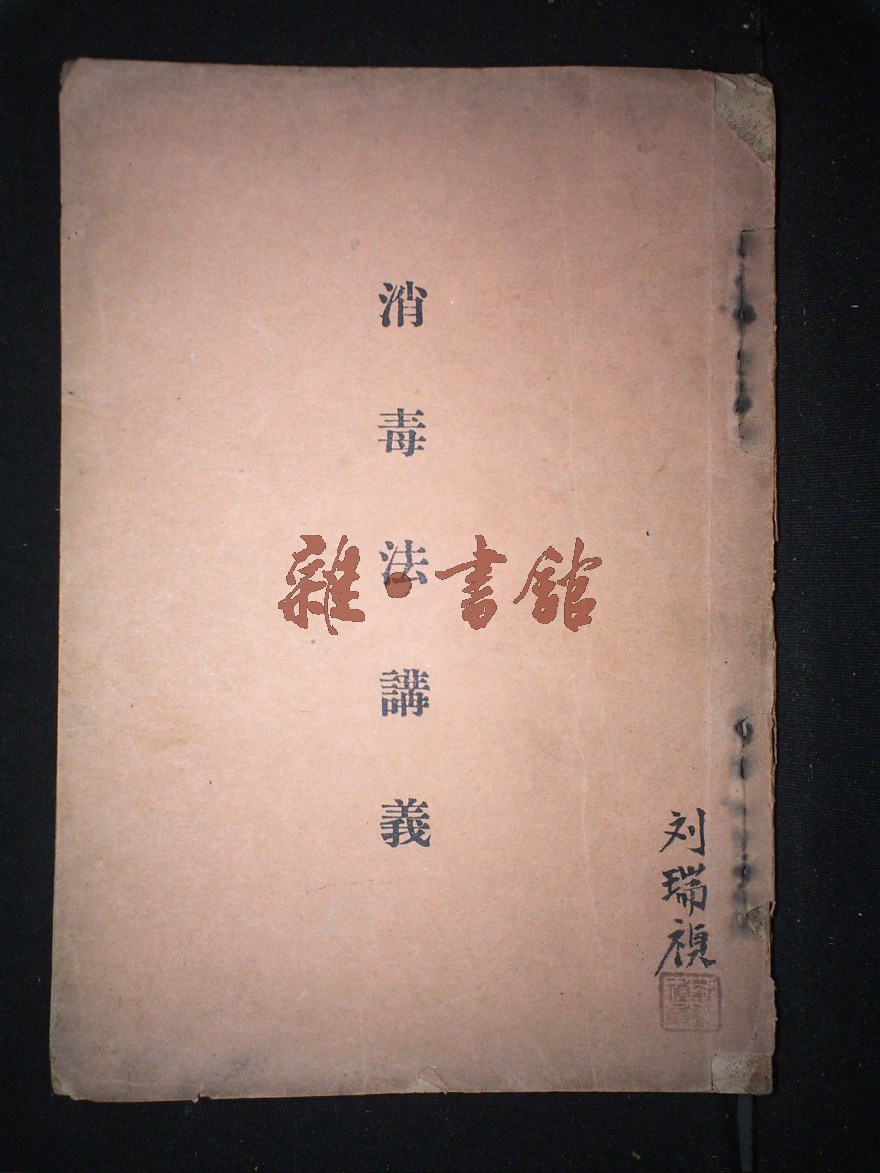 消毒法講義
雜·書館
刘瑞禎